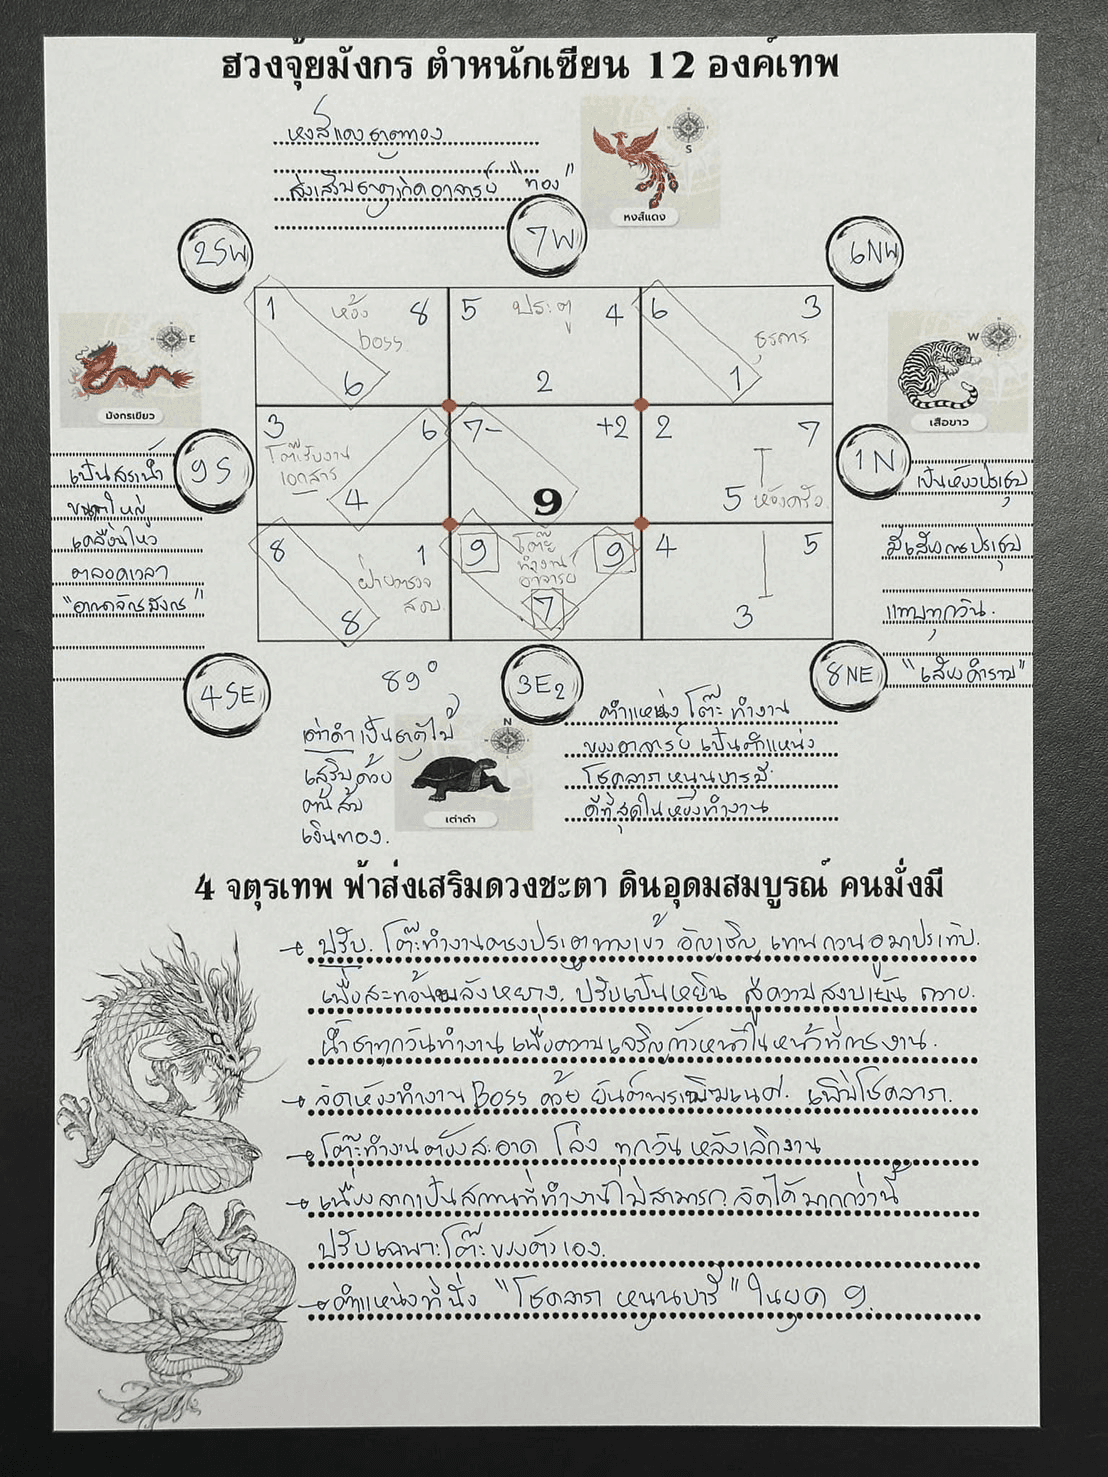 ฮวงจุ้ยมังกร ตำหนักเซียน 12 องค์เทพ
หงส์แดงธาตุทอง
ส่งเสริมธาตุเกิดอาจารย์ "ทอง"
S
หงส์แดง
2SW
7W
6NW
1 ห้อง 8
boss
6
5 ประตู 4
2
6 3
ธุรการ
1
E
มังกรเขียว
W
เสือขาว
3 6
โต๊ะรับงาน
เอกสาร
4
7- +2
9
2 7
5 ห้องครัว
9S
1N
เป็นสระน้ำ
ขนาดใหญ่
เคลื่อนไหว
ตลอดเวลา
"อาณาจักรมังกร"
เป็นห้องประชุม
มีเสียงคนประชุม
แทบทุกวัน.
"เสียงคำราม"
8 1
ฝ่ายตรวจ
สอบ
8
9 โต๊ะ 9
ทำงาน
อาจารย์
7
4 5
3
4SE
89°
3E2
8NE
เต่าดำเป็นธาตุไม้
เสริมด้วย
ต้นส้ม
เงินทอง.
N
เต่าดำ
ตำแหน่งโต๊ะทำงาน
ของอาจารย์ เป็นตำแหน่ง
โชคลาภ หนุนบารมี
ดีที่สุดในห้องทำงาน
4 จตุรเทพ ฟ้าส่งเสริมดวงชะตา ดินอุดมสมบูรณ์ คนมั่งมี
ปรับ. โต๊ะทำงานตรงประตูทางเข้า อัญเชิญ เทพกวนอูมาประทับ.
เพื่อสะท้อนพลังหยาง. ปรับเป็นหยิน สู่ความสงบเย็น ถวาย.
น้ำชาทุกวันทำงาน เพื่อความเจริญก้าวหน้าในหน้าที่การงาน.
จัดห้องทำงาน Boss ด้วย ยันต์พระพิฆเนศ. เพิ่มโชคลาภ.
โต๊ะทำงานต้องสะอาด โล่ง ทุกวันหลังเลิกงาน
เนื่องจากเป็นสถานที่ทำงานไม่สามารถจัดได้มากกว่านี้
ปรับเฉพาะโต๊ะของตัวเอง.
ตำแหน่งที่นั่ง "โชคลาภ หนุนบารมี" ในยุค 9.